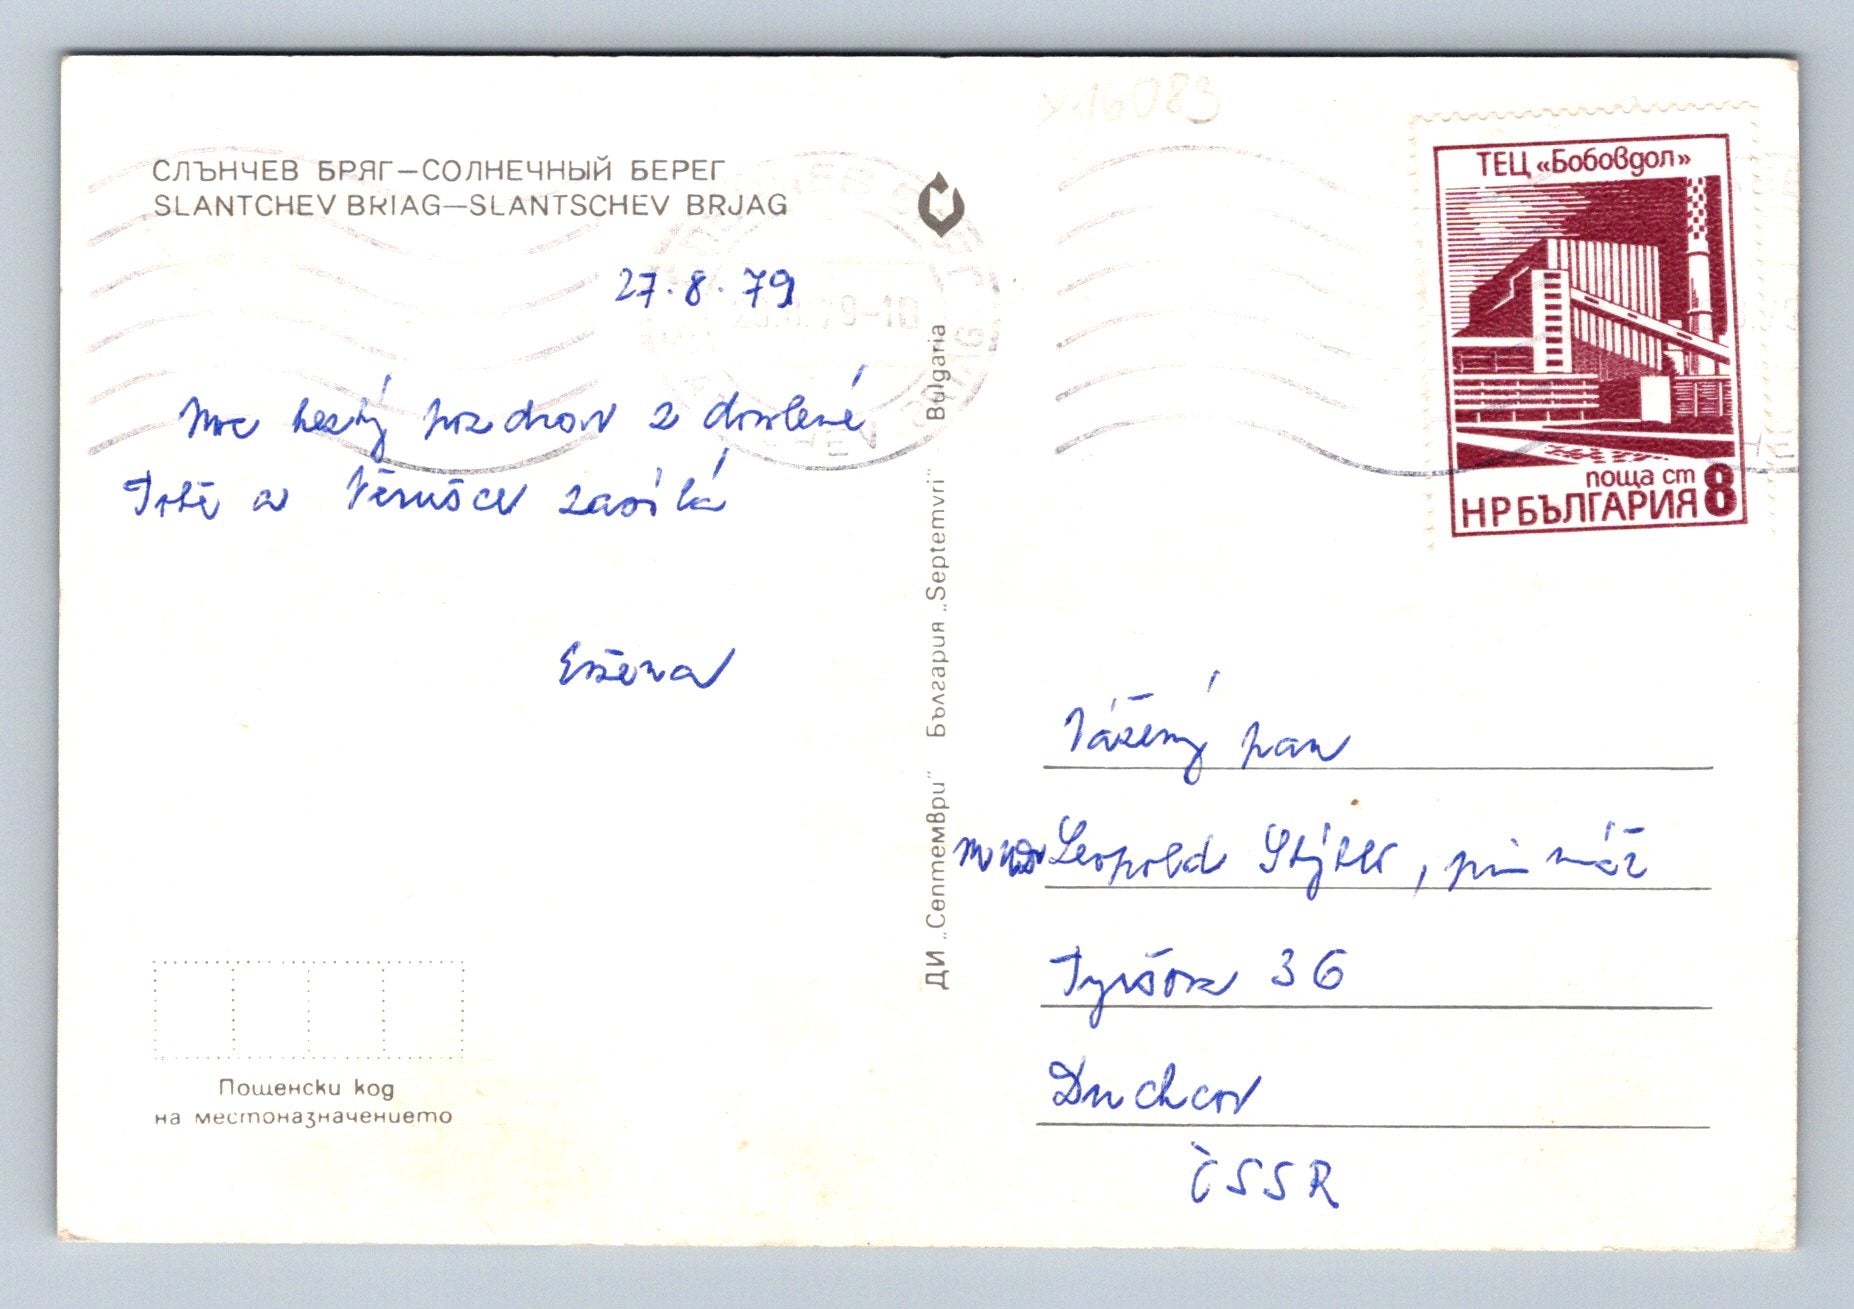 x16083
СЛЪНЧЕВ БРЯГ—СОЛНЕЧНЫЙ БЕРЕГ
SLANTCHEV BRIAG—SLANTSCHEV BRJAG
27.8.79
Moc hezký pozdrav z dovolené
Tobě a Věrušce zasílá
Evžena
Пощенски код
на местоназначението
ДИ „Септември" България „Septemvri" Bulgaria
ТЕЦ «Бобовдол»
поща ст 8
НР БЪЛГАРИЯ
Vážený pan
Leopold, primář
Tyršova 36
Duchcov
ČSSR